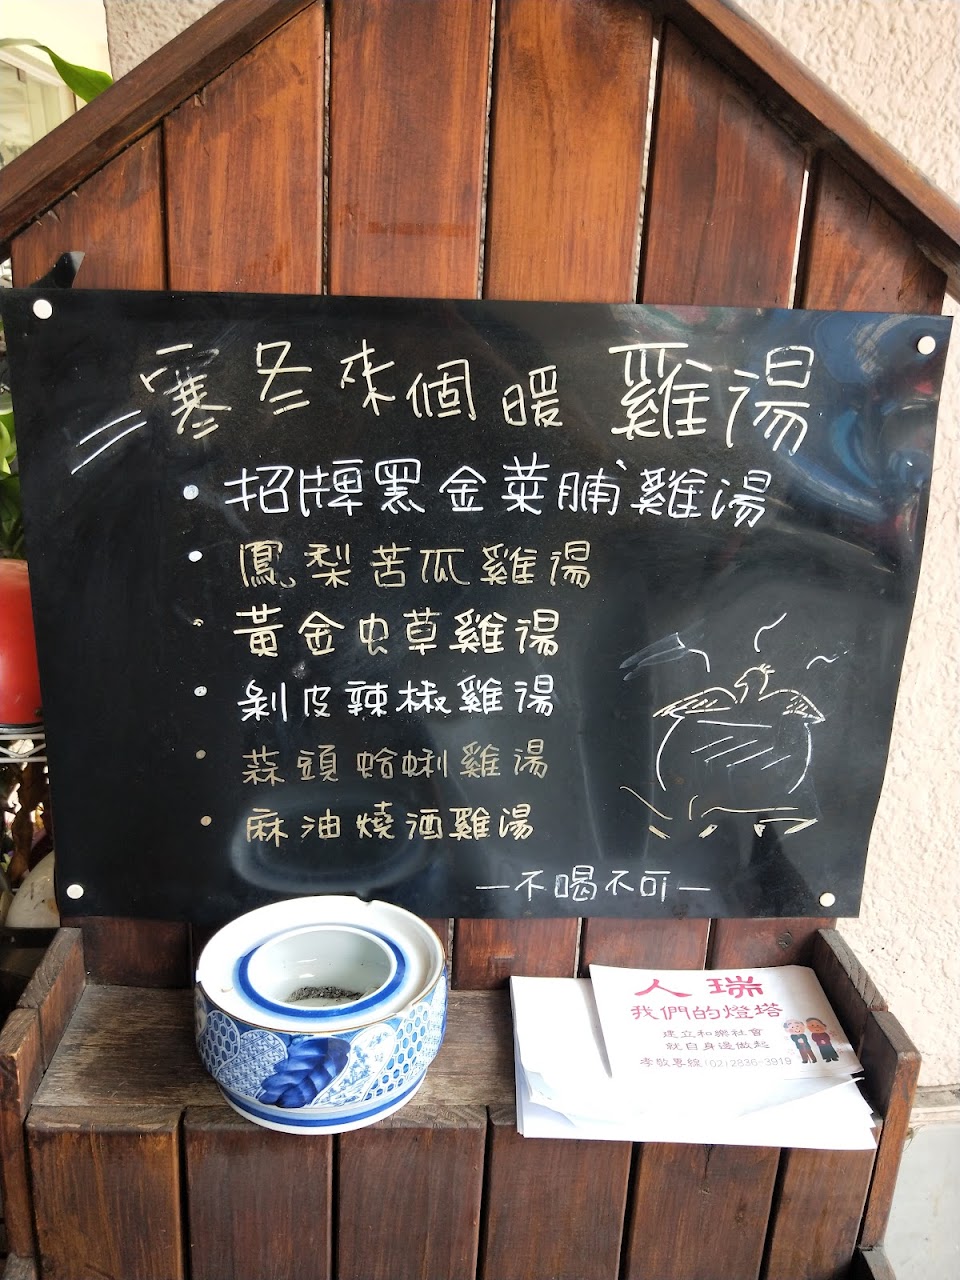 寒冬來個暖雞湯
• 招牌黑金菜脯雞湯
• 鳳梨苦瓜雞湯
• 黃金虫草雞湯
• 剝皮辣椒雞湯
• 蒜頭蛤蜊雞湯
• 麻油燒酒雞湯
—不喝不可—
人瑞
我們的燈塔
建立和樂社會
就自身邊做起
孝敬專線(02)2836-3919